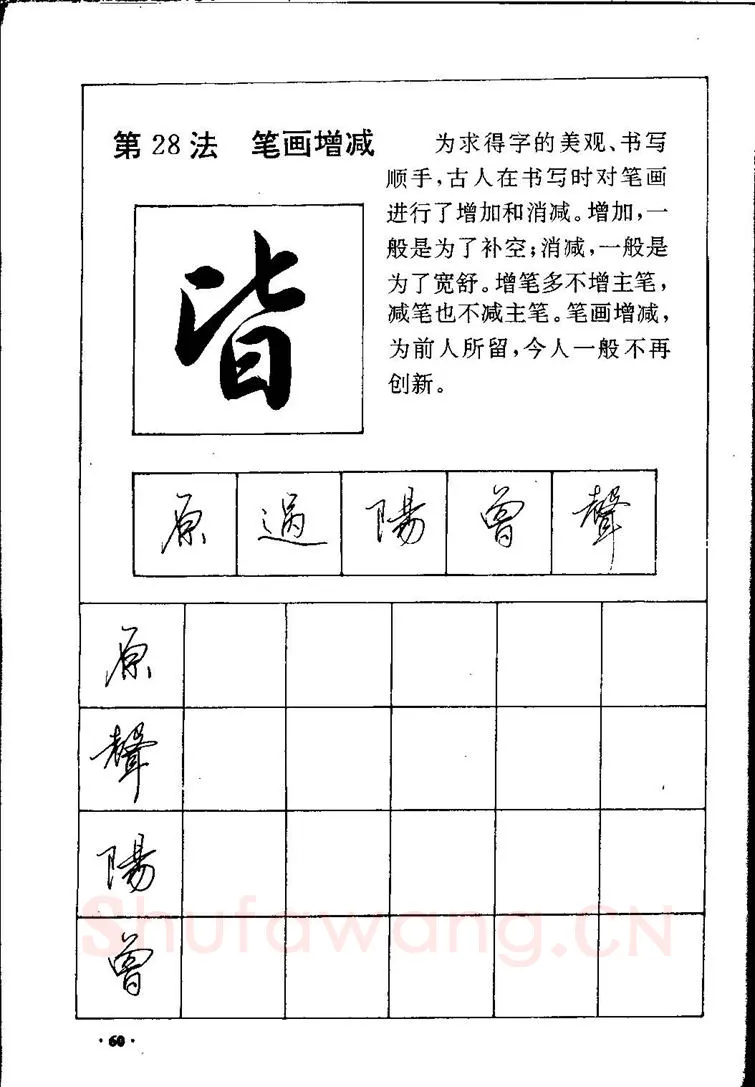 第28法 笔画增减
为求得字的美观、书写
顺手，古人在书写时对笔画
进行了增加和消减。增加，一
般是为了补空；消减，一般是
为了宽舒。增笔多不增主笔，
减笔也不减主笔。笔画增减，
为前人所留，今人一般不再
创新。
皆
原 過 陽 曾 聲
原
聲
陽
曾
Shufawang.CN
·60·